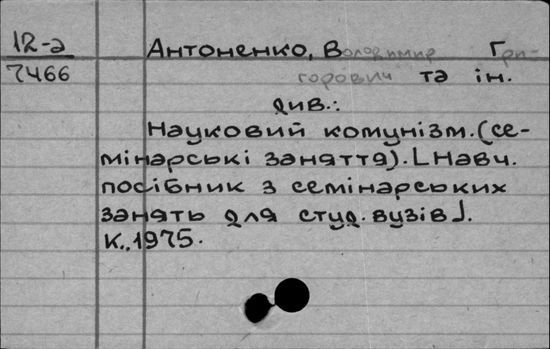 12-а Антоненко, Володимир Гри-
7466 горович та ін.
див.:
Науковий комунізм.(се-
мінарські заняття).[Навч.
посібник з семінарських
занять для студ. вузів].
К.,1975.